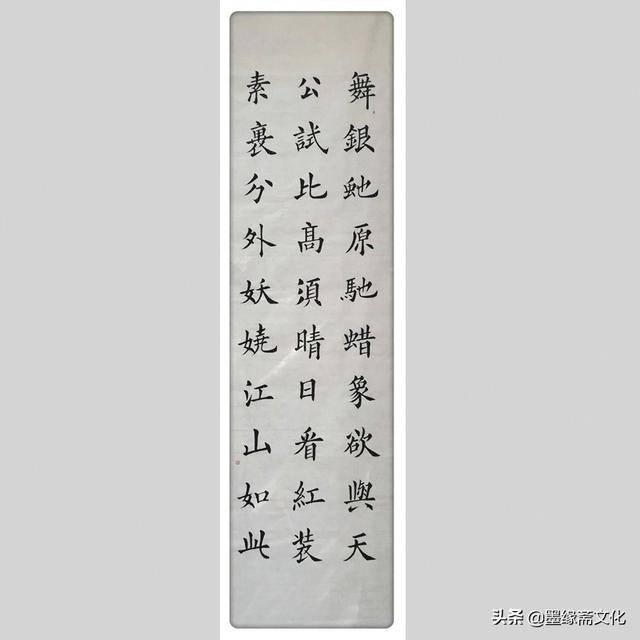 舞銀虵原馳蜡象欲與天
公試比高須晴日看紅装
素裹分外妖娆江山如此
头条 @墨缘斋文化